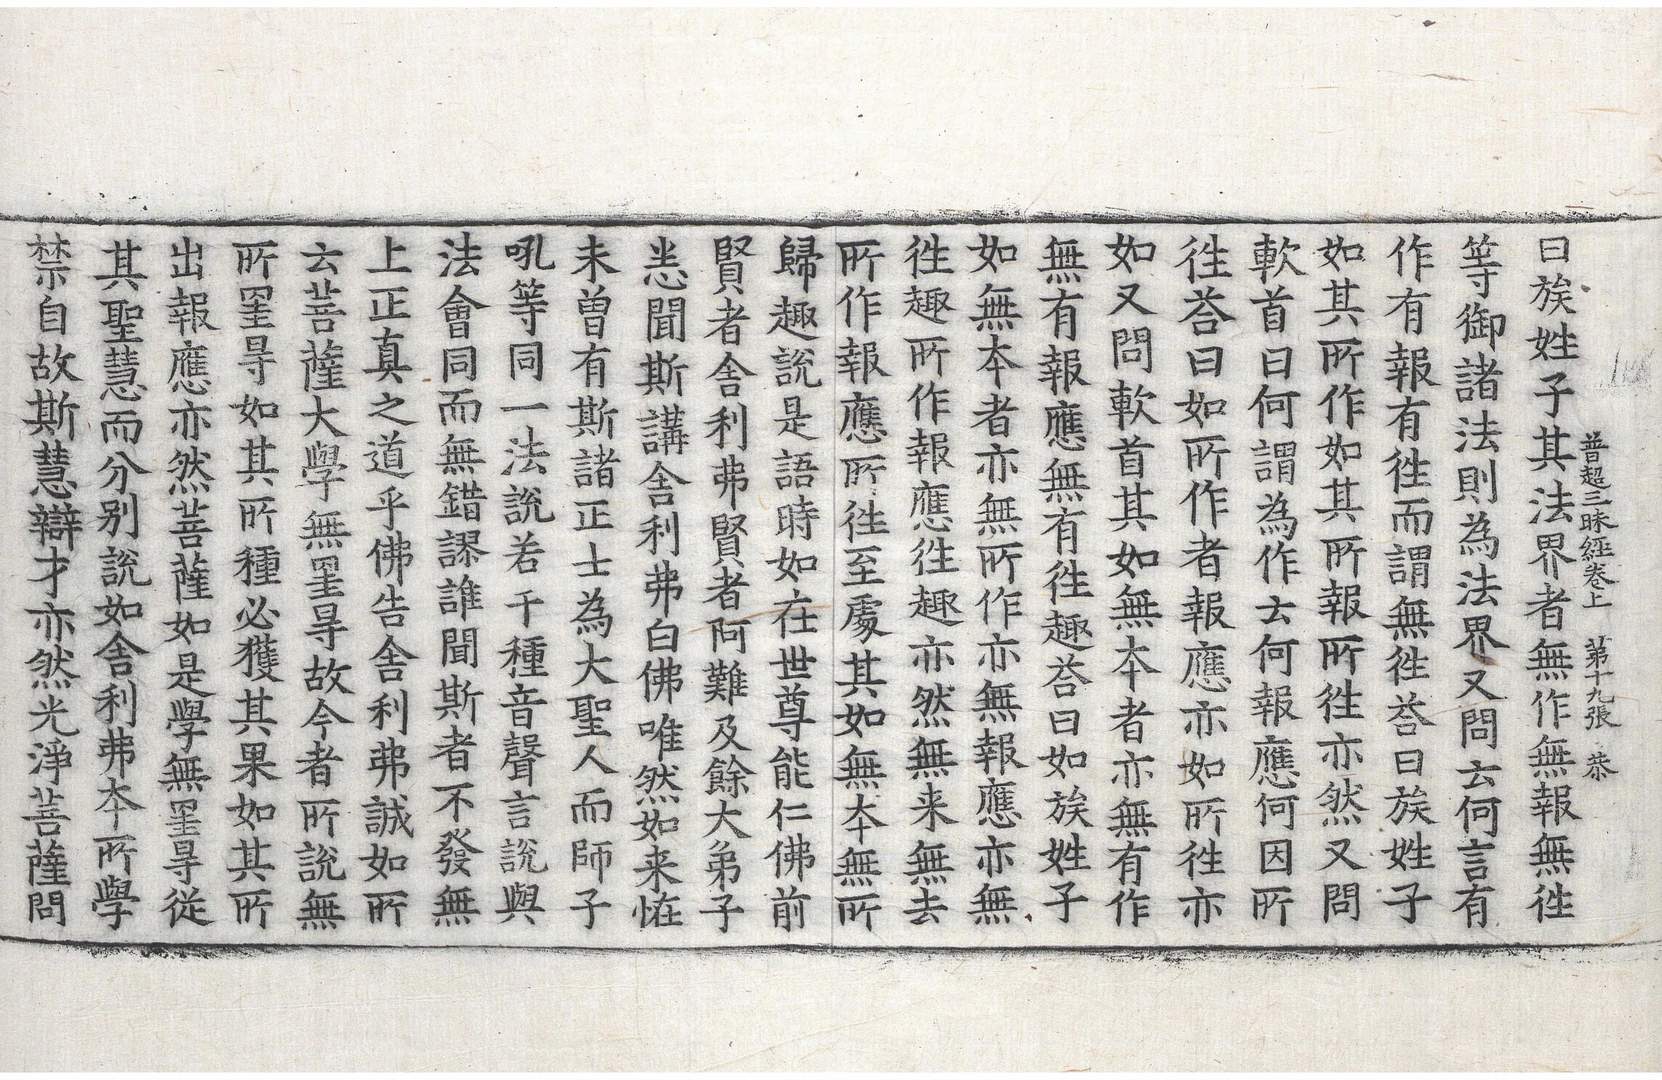 普超三昧経卷上　第十九張　恭
曰族姓子其法界者無作無報無徃
等御諸法則為法界又問云何言有
作有報有徃而謂無徃荅曰族姓子
如其所作如其所報所徃亦然又問
軟首曰何謂為作云何報應何因所
徃荅曰如所作者報應亦如所徃亦
如又問軟首其如無夲者亦無有作
無有報應無有徃趣荅曰如族姓子
如無夲者亦無所作亦無報應亦無
徃趣所作報應徃趣亦然無来無去
所作報應所徃至處其如無夲無所
歸趣說是語時如在世尊能仁佛前
賢者舎利弗賢者阿難及餘大弟子
悉聞斯講舎利弗白佛唯然如来恠
未曽有斯諸正士為大聖人而師子
吼等同一法說若干種音聲言說與
法會同而無錯謬誰聞斯者不發無
上正真之道乎佛告舎利弗誠如所
云菩薩大學無罣㝵故今者所說無
所罣㝵如其所種必獲其果如其所
出報應亦然菩薩如是學無罣㝵從
其聖慧而分別說如舎利弗夲所學
禁自故斯慧辯才亦然光淨菩薩問